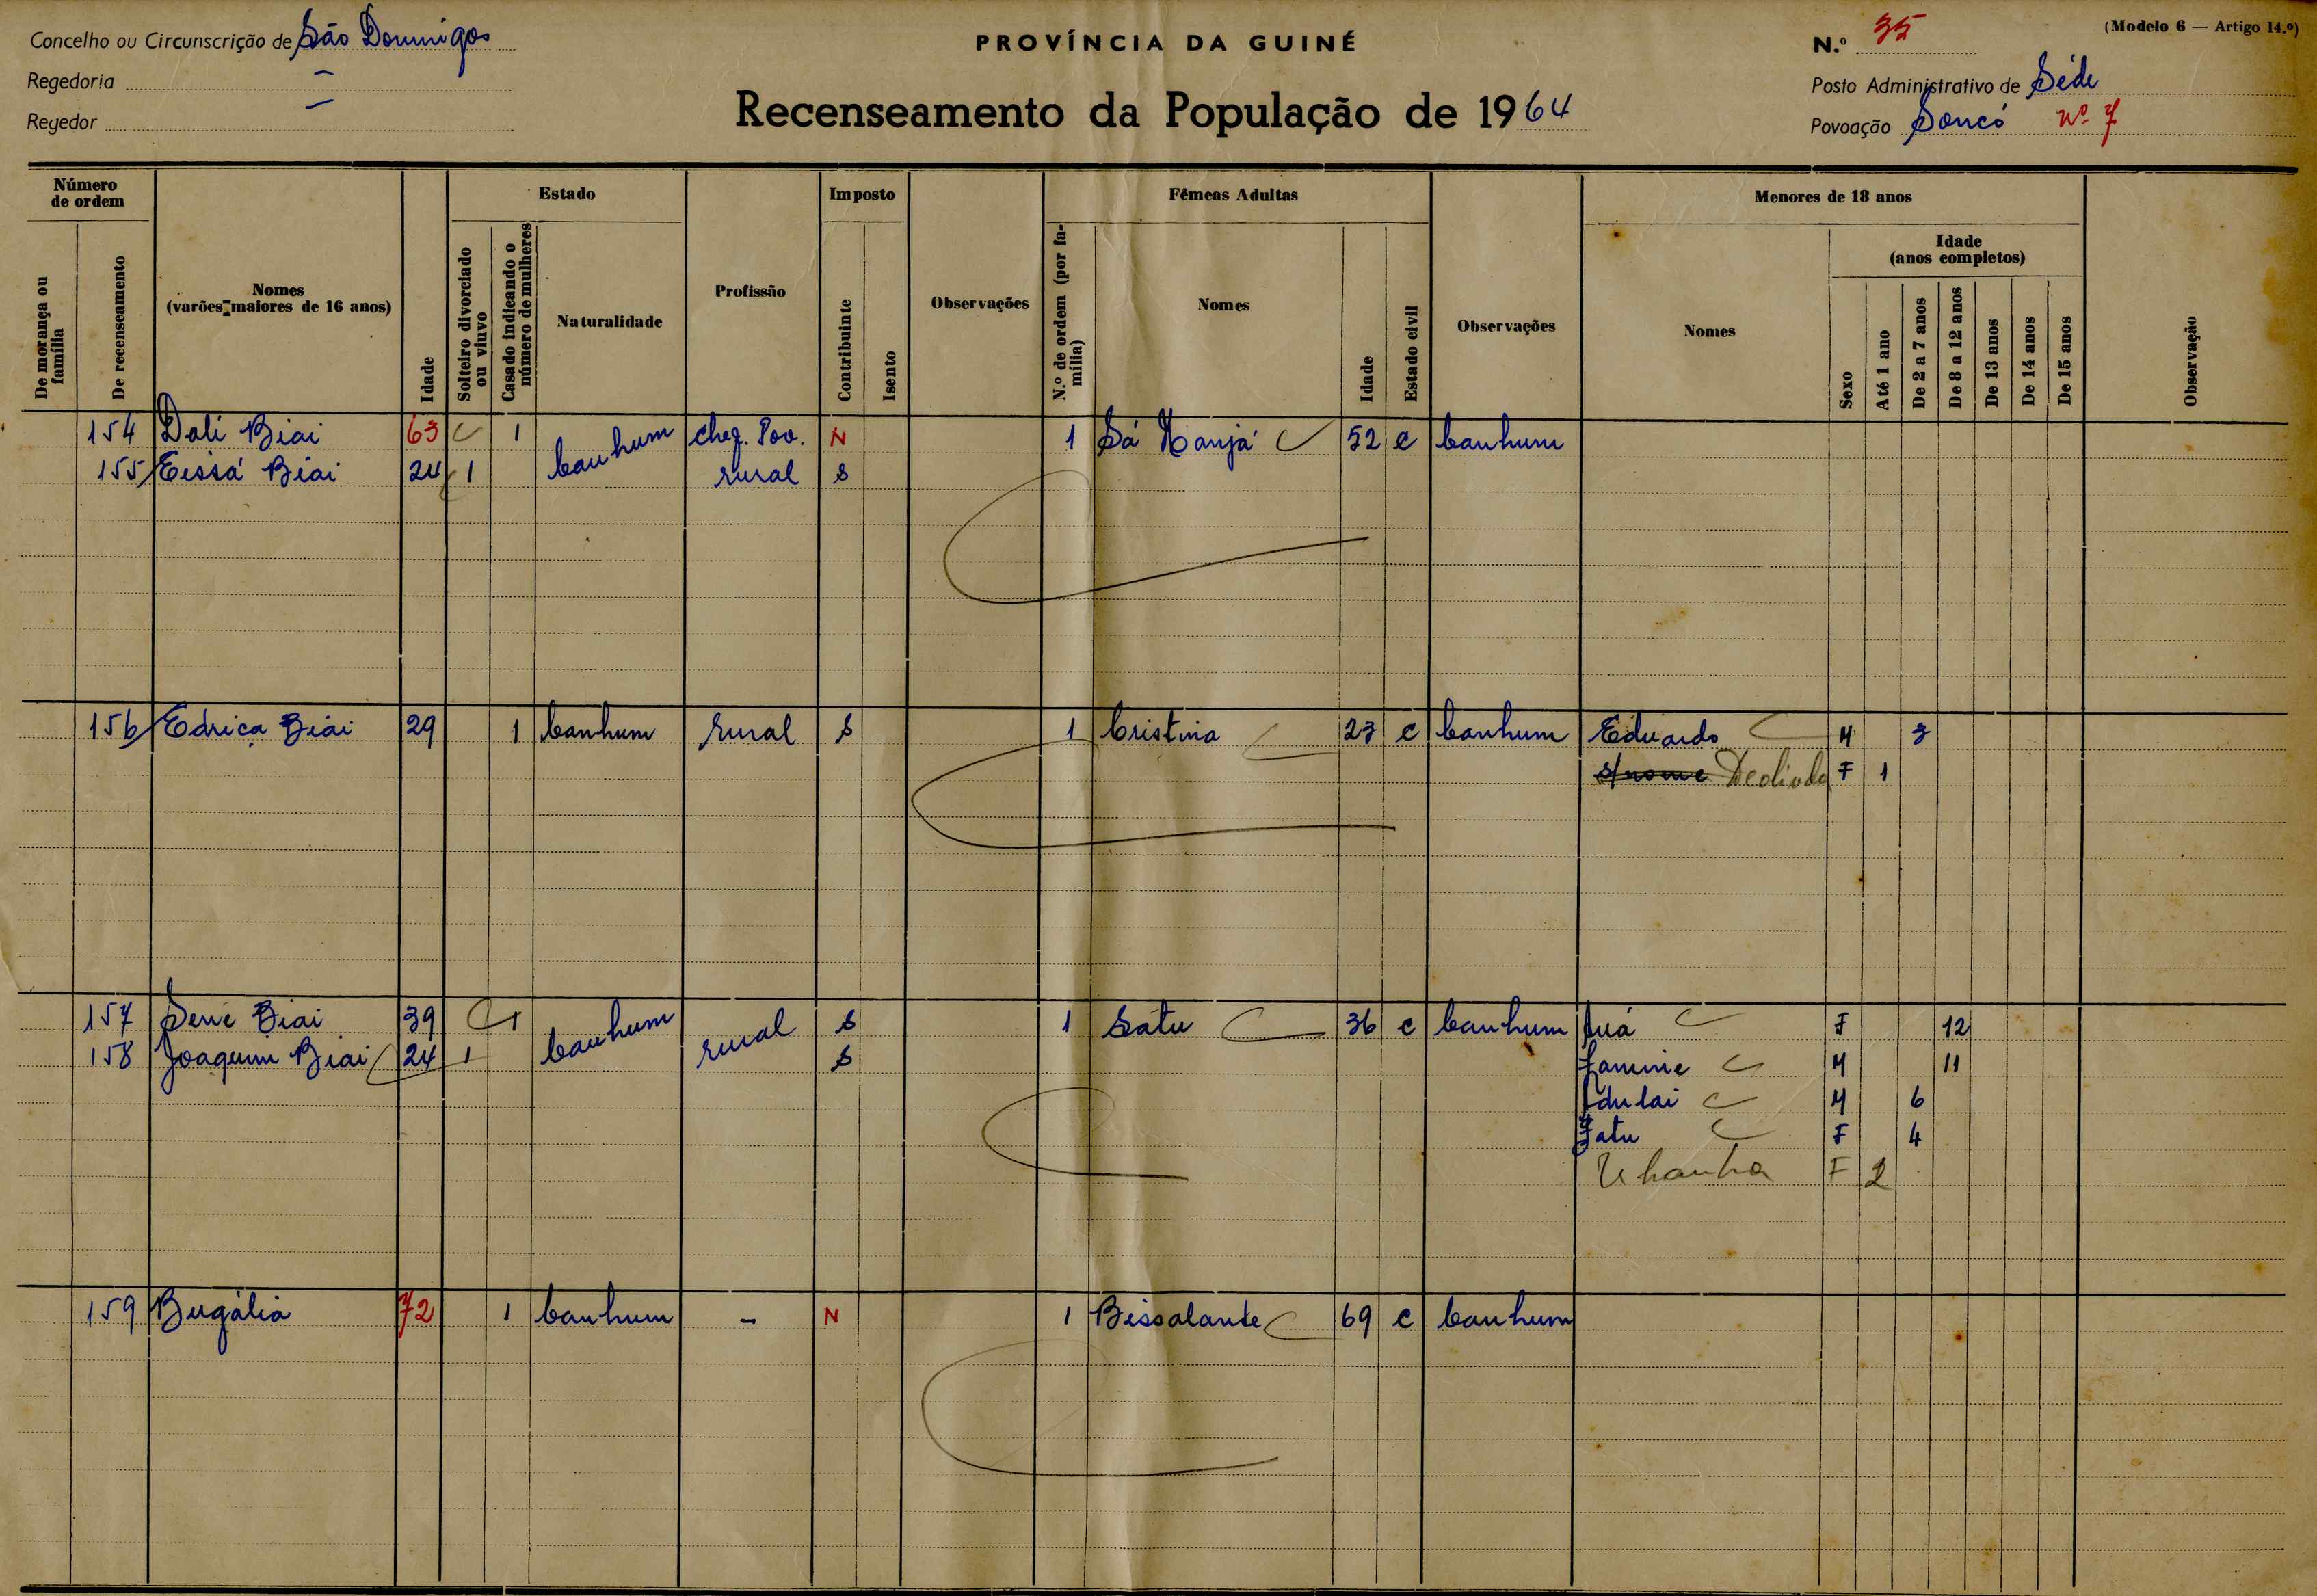 Concelho ou Circunscrição de São Domingos
Regedoria —
Regedor —
PROVÍNCIA DA GUINÉ
Recenseamento da População de 1964
(Modelo 6 — Artigo 14.º)
N.º 35
Posto Administrativo de Séde
Povoação Soncó nº 7
Número de ordem
De morança ou família
De recenseamento
Nomes (varões maiores de 16 anos)
Idade
Estado
Solteiro divorciado ou viuvo
Casado indicando o número de mulheres
Naturalidade
Profissão
Imposto
Contribuinte
Isento
Observações
Fêmeas Adultas
N.º de ordem (por família)
Nomes
Idade
Estado civil
Observações
Menores de 18 anos
Nomes
Sexo
Idade (anos completos)
Até 1 ano
De 2 a 7 anos
De 8 a 12 anos
De 13 anos
De 14 anos
De 15 anos
Observação
154 Dali Biai 63 1 banhum cheq. Pov. N 1 Sá Manjá 52 c banhum
155 Eissá Biai 24 1 rural S
156 Edriça Biai 29 1 banhum rural S 1 Cristina 23 c banhum Eduardo M 3
s/nome Deolinda F 1
157 Sene Biai 39 1 banhum rural S 1 Satu 36 c banhum F 12
158 Joaquim Biai 24 1 S Lamine M 11
M 6
Fatu F 4
F 2
159 Bugália 72 1 banhum - N 1 Bissalante 69 c banhum